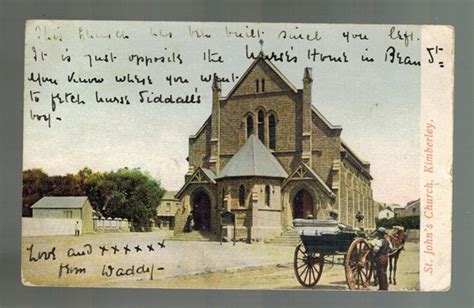 This Church has been built since you left.
It is just opposite the Nurse's Home in Bean St
You know where you went
to fetch nurse Siddall's
boy.
St. John's Church, Kimberley.
Love and xxxxxx
from Waddy-